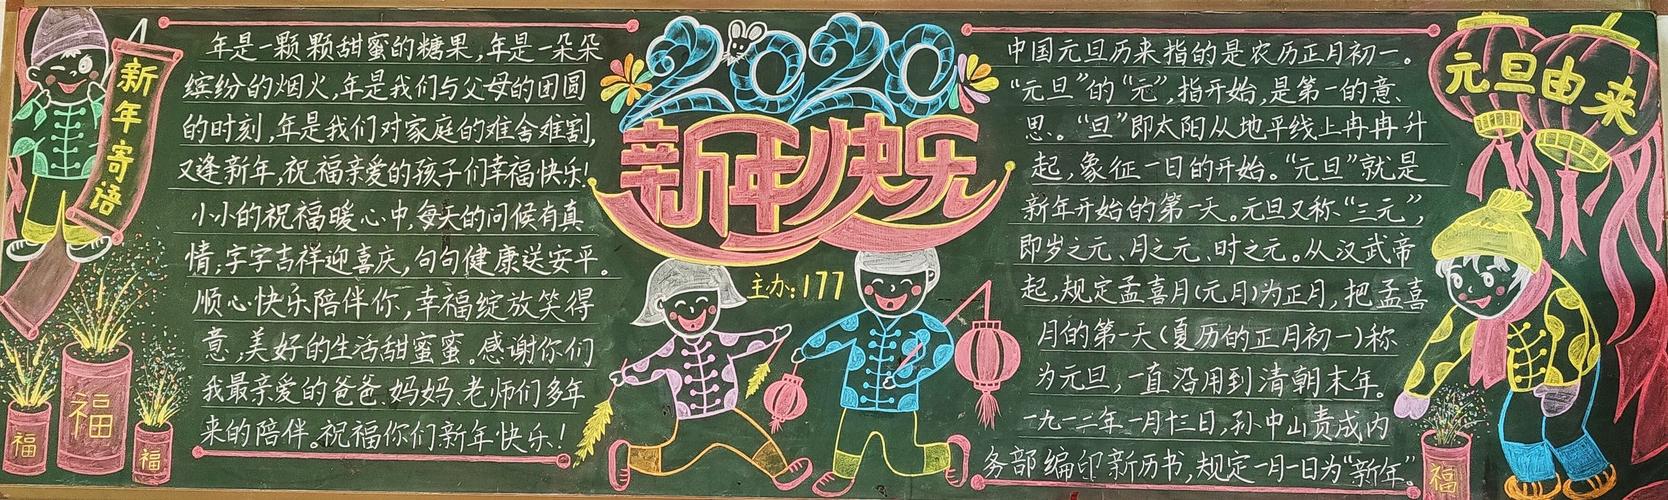 新年寄语
年是一颗颗甜蜜的糖果,年是一朵朵
缤纷的烟火,年是我们与父母的团圆
的时刻,年是我们对家庭的难舍难割,
又逢新年,祝福亲爱的孩子们幸福快乐!
小小的祝福暖心中,每天的问候有真
情;字字吉祥迎喜庆,句句健康送安平。
顺心快乐陪伴你,幸福绽放笑得
意,美好的生活甜蜜蜜。感谢你们
我最亲爱的爸爸、妈妈、老师们多年
来的陪伴。祝福你们新年快乐!
福
福
福
2020
新年快乐
主办:177
元旦由来
中国元旦历来指的是农历正月初一。
“元旦”的“元”,指开始,是第一的意、
思。“旦”即太阳从地平线上冉冉升
起,象征一日的开始。“元旦”就是
新年开始的第一天。元旦又称“三元”,
即岁之元、月之元、时之元。从汉武帝
起,规定孟喜月(元月)为正月,把孟喜
月的第一天(夏历的正月初一)称
为元旦,一直沿用到清朝末年。
一九一二年一月十三日,孙中山责成内
务部编印新历书,规定一月一日为“新年”
福